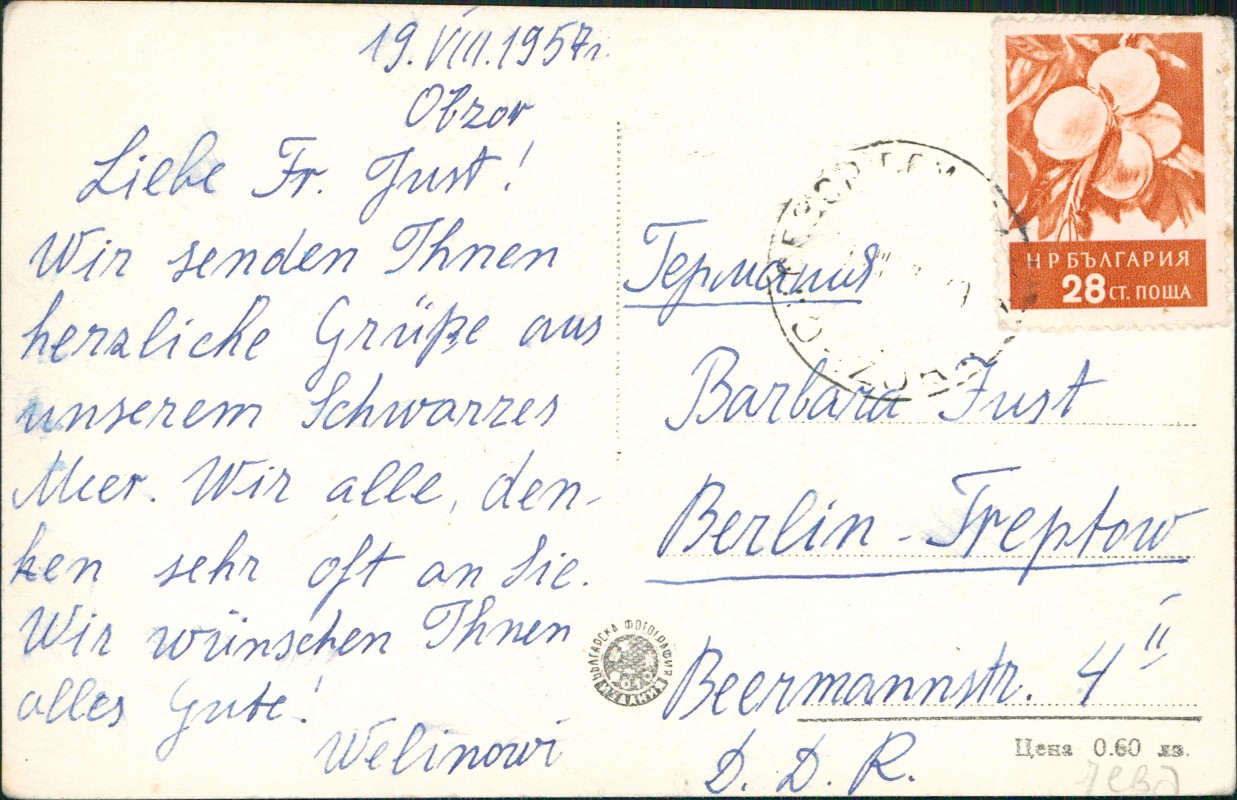 19.VIII.1957г.
Obzor
Liebe Fr. Just!
Wir senden Ihnen
herzliche Grüße aus
unserem Schwarzes
Meer. Wir alle, den-
ken sehr oft an Sie.
Wir wünschen Ihnen
alles Gute!
Welinowi
НРБЪЛГАРИЯ
28 СТ. ПОЩА
Германия
Barbara Just
Berlin - Treptow
Beermannstr. 4 II
D. D. R.
БЪЛГАРСКА ФОТОГРАФИЯ
Цена 0.60 лв.